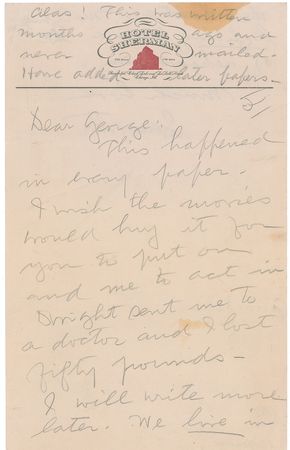 Alas! This was written
months ago and
never mailed.
Have added later papers—
HOTEL
SHERMAN
Dear George:
This happened
in every paper.
I wish the movies
would buy it for
you to put on
and me to act in
Dwight sent me to
a doctor and I lost
fifty pounds—
I will write more
later. We live in